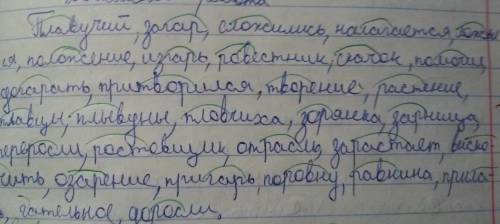 Плавучий, загар, сложились, налагается,
ся, положение, изгарь, ровестник, скачок, помочи,
догарать, притворился, творение, растение,
пловцы, плывуны, пловчиха, зорянка, зарница,
переросли, ростовщик, отрасль, зарастает, выско
чить, озарение, пригарь, поровну, равнина, прига
ь, гательное, доросли.